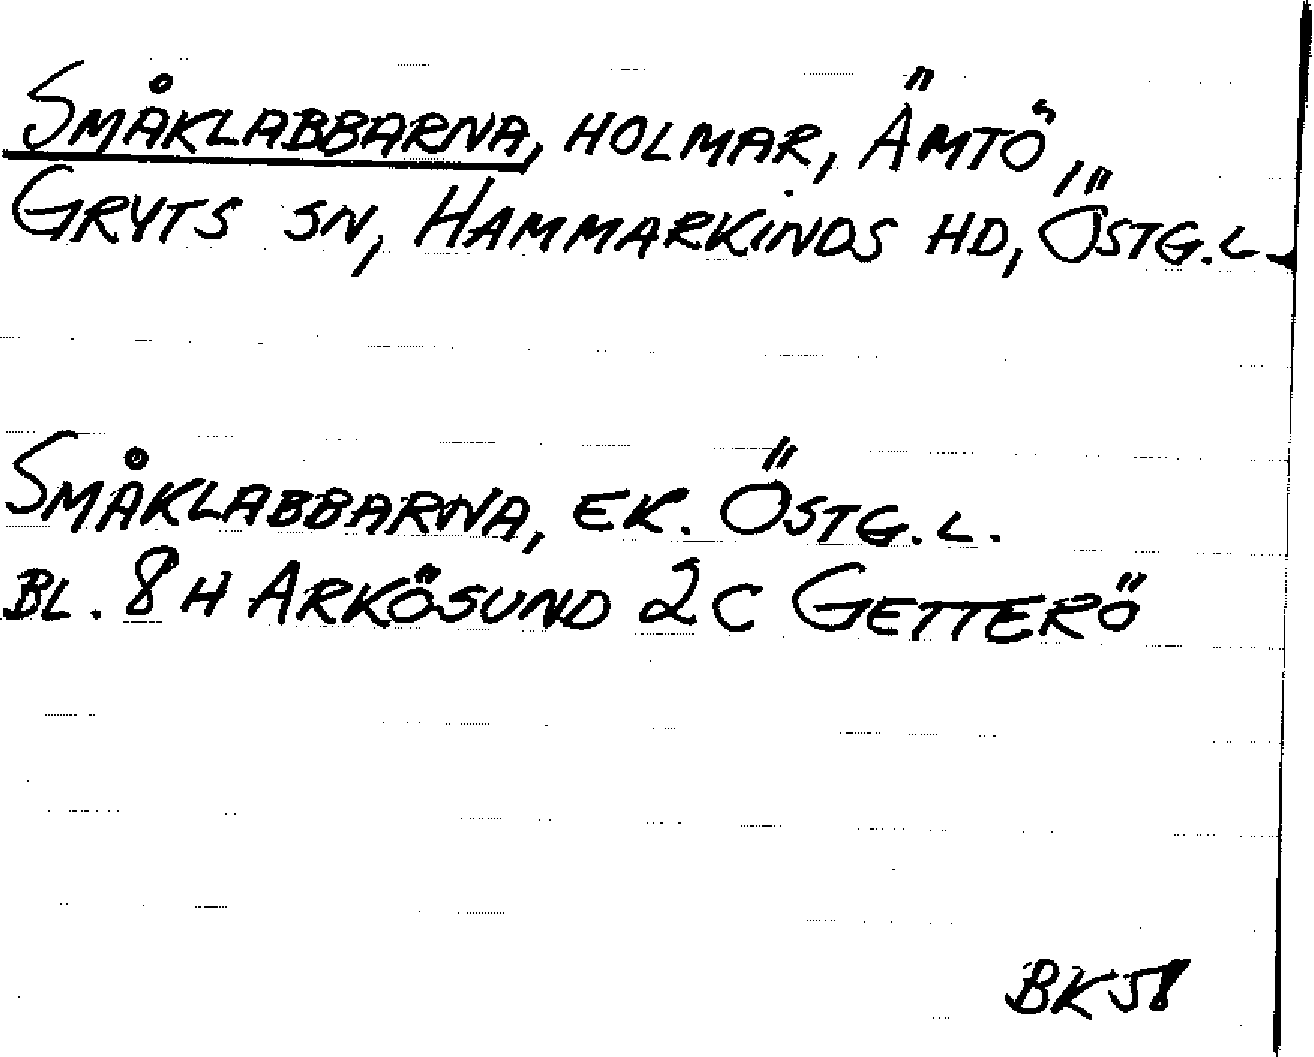 SMÅKLABBARNA, HOLMAR, ÄMTÖ,
GRYTS SN, HAMMARKINDS HD, ÖSTG.L.
SMÅKLABBARNA, EK. ÖSTG.L.
BL. 8H ARKÖSUND 2C GETTERÖ
BK58